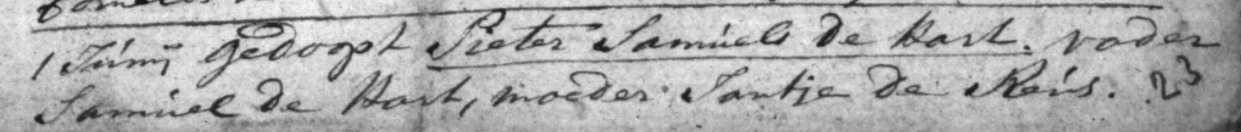 1 Junij gedoopt Pieter Samuels de Hart. vader
Samuel de Hart, moeder Jantje de Reus. 23